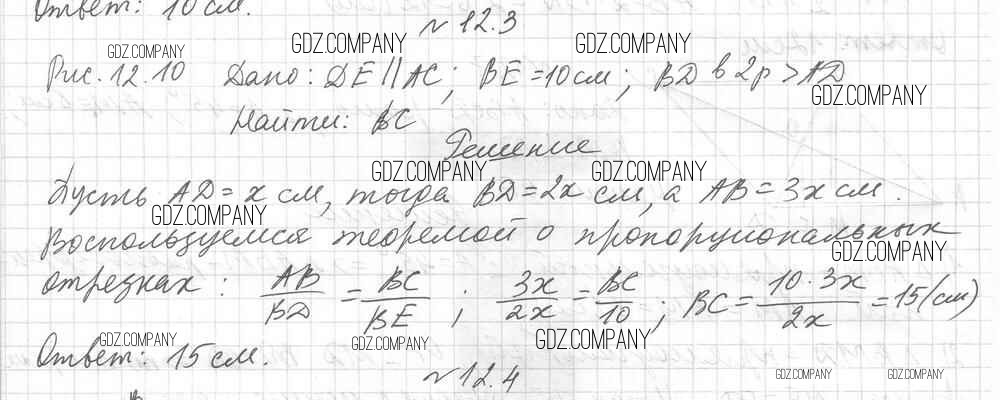 Ответ: 10 см.
№ 12.3
GDZ.COMPANY GDZ.COMPANY GDZ.COMPANY
Рис. 12.10 Дано: DE || AC; BE = 10 см; BD в 2р > AD
GDZ.COMPANY
Найти: BC
Решение
GDZ.COMPANY GDZ.COMPANY
Пусть AD = x см, тогда BD = 2x см, а AB = 3x см.
GDZ.COMPANY
Воспользуемся теоремой о пропорциональных
GDZ.COMPANY
отрезках: AB/BD = BC/BE; 3x/2x = BC/10; BC = 10·3x/2x = 15 (см)
GDZ.COMPANY GDZ.COMPANY GDZ.COMPANY
Ответ: 15 см.
№ 12.4
GDZ.COMPANY GDZ.COMPANY